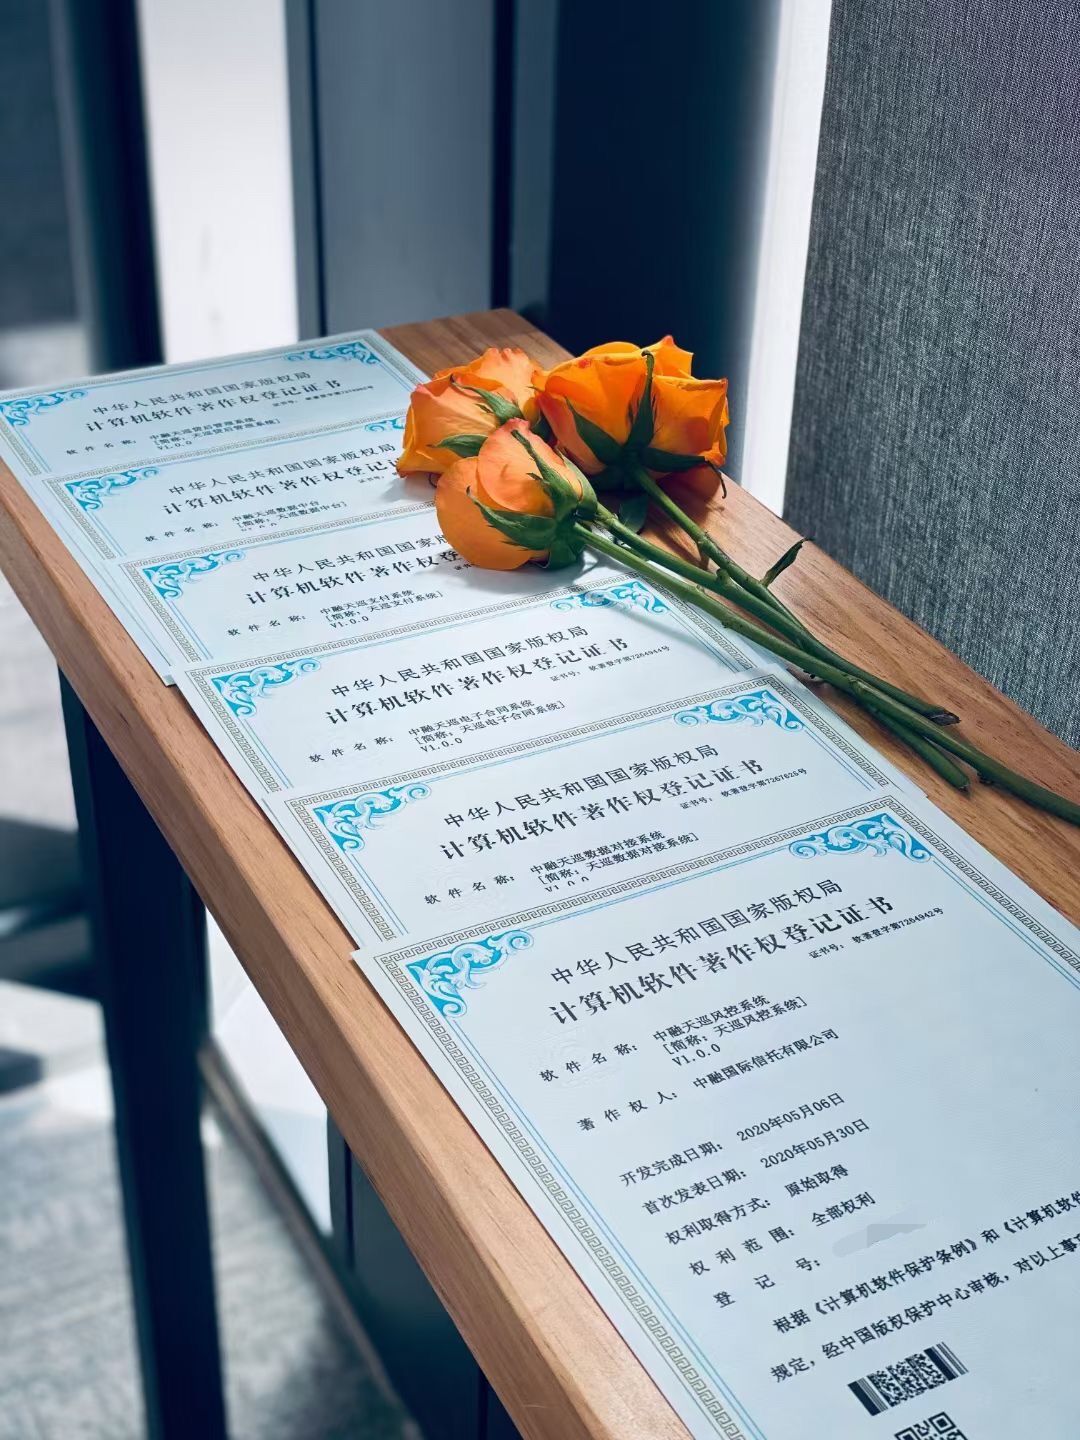 中华人民共和国国家版权局
计算机软件著作权登记证书
证书号：
软件名称：
中融天巡贷后管理系统
[简称：天巡贷后管理系统]
V1.0.0
中华人民共和国国家版权局
计算机软件著作权登记证
证书号：
软件名称：
中融天巡数据中台
[简称：天巡数据中台]
中华人民共和国国家版
计算机软件著作权登
软件名称：
中融天巡支付系统
[简称：天巡支付系统]
V1.0.0
中华人民共和国国家版权局
计算机软件著作权登记证书
证书号：软著登字第7264944号
软件名称：
中融天巡电子合同系统
[简称：天巡电子合同系统]
V1.0.0
中华人民共和国国家版权局
计算机软件著作权登记证书
证书号：软著登字第7267625号
软件名称：
中融天巡数据对接系统
[简称：天巡数据对接系统]
V1.0.0
中华人民共和国国家版权局
计算机软件著作权登记证书
证书号：软著登字第7264942号
软件名称：
中融天巡风控系统
[简称：天巡风控系统]
V1.0.0
著作权人：中融国际信托有限公司
开发完成日期：2020年05月06日
首次发表日期：2020年05月30日
权利取得方式：原始取得
权利范围：全部权利
登记号：
根据《计算机软件保护条例》和《计算机软件
规定，经中国版权保护中心审核，对以上事